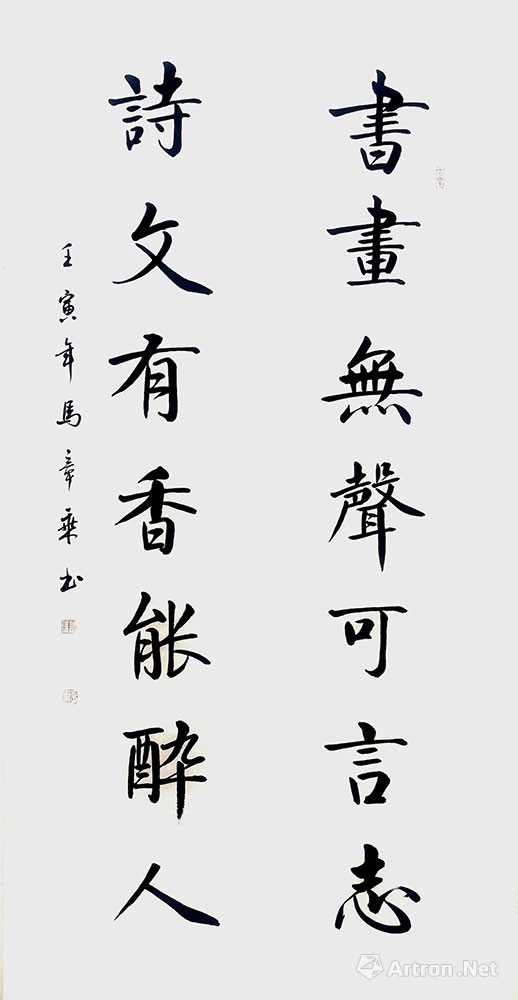 書畫無聲可言志
詩文有香能醉人
壬寅年馬章乘书
Artron.Net